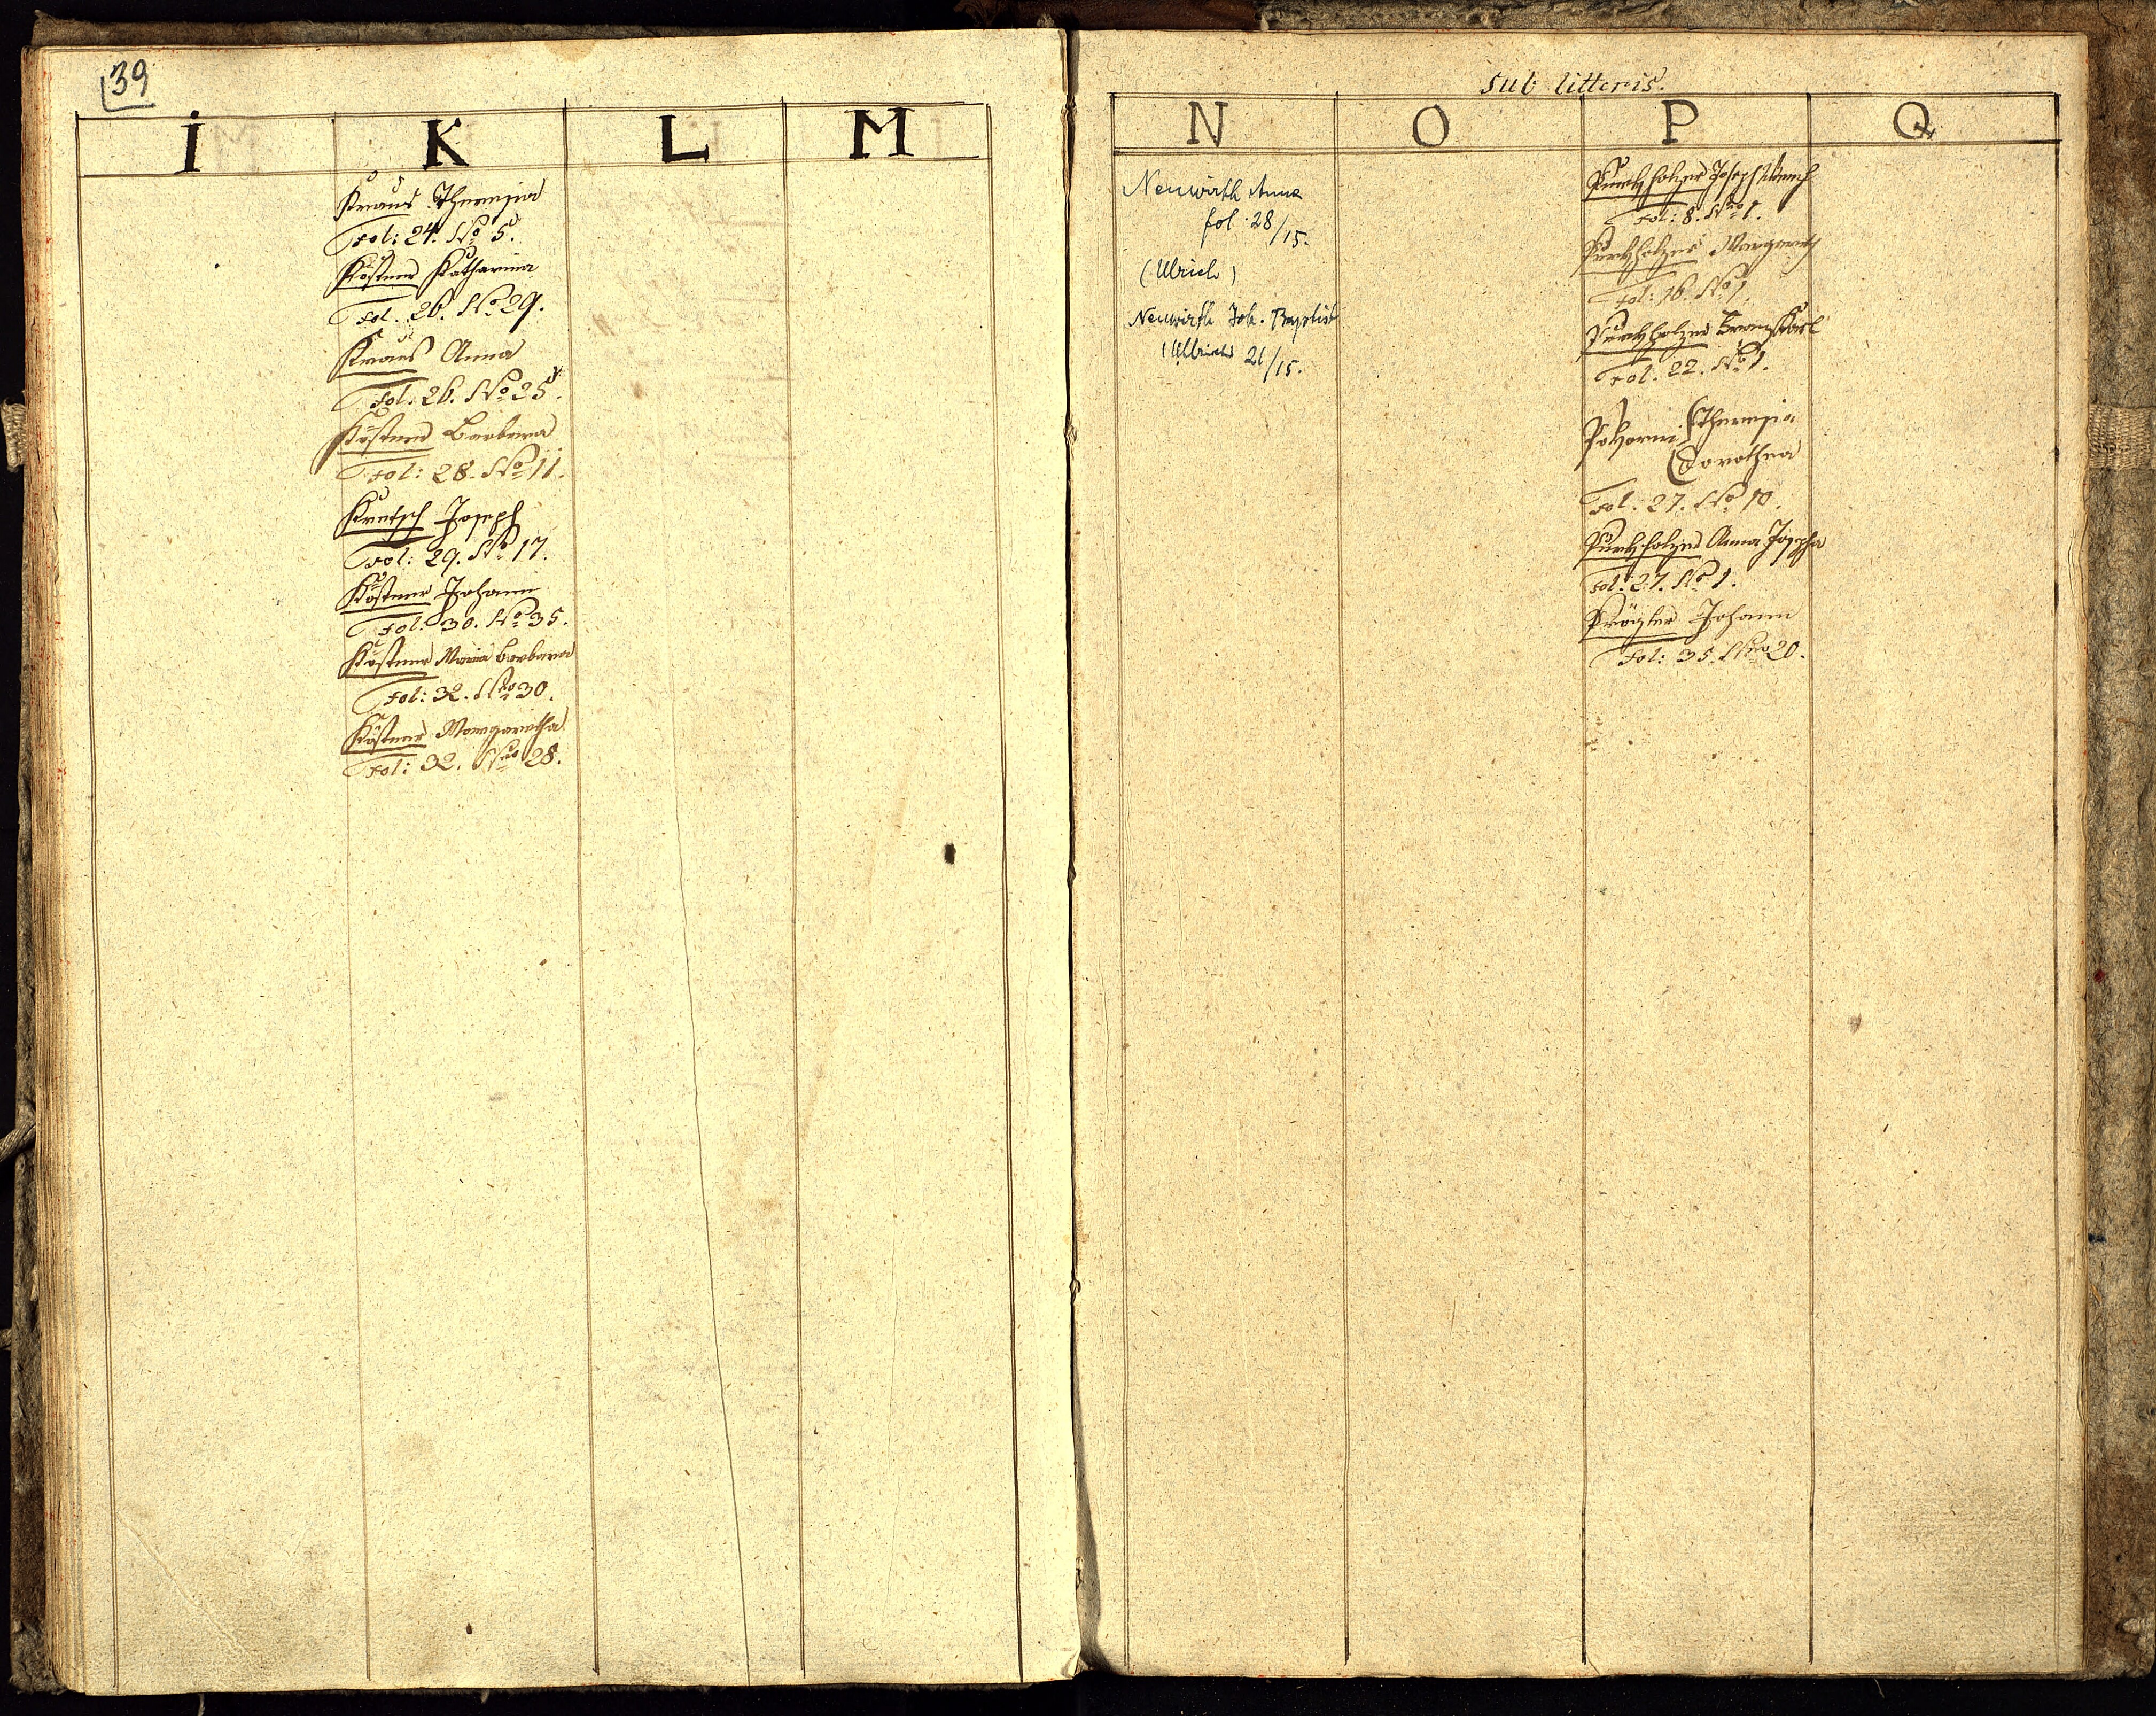 39
I K L M
Kraus Theresia
Fol: 24. No 5.
Köstner Katharina
Fol. 26. No 29.
Kraus Anna
Fol: 26. No 25.
Köstner Barbara
Fol: 28. No 11.
Kretsch Joseph
Fol: 29. No 17.
Köstner Johann
Fol: 30. No 35.
Köstner Maria Barbara
Fol: 32. Nro 30.
Köstner Margaretha
Fol: 32. Nro 28.
Sub litteris.
N O P Q
Neuwirth Anna
fol. 28/15.
(Ulrich)
Neuwirth Joh. Baptist
(Ulbrich) 21/15.
Purkholzer Joseph
Fol: 8. Nro 1.
Purkholzer Margareth
Fol: 16. No 1.
Purkholzer Franz Karl
Fol. 22. No 1.
Pokorni (Theresia
(Dorothea
Fol. 27. No 10.
Purkholzer Anna Josepha
Fol: 27. No 1.
Prögler Johann
Fol: 35. Nro 20.